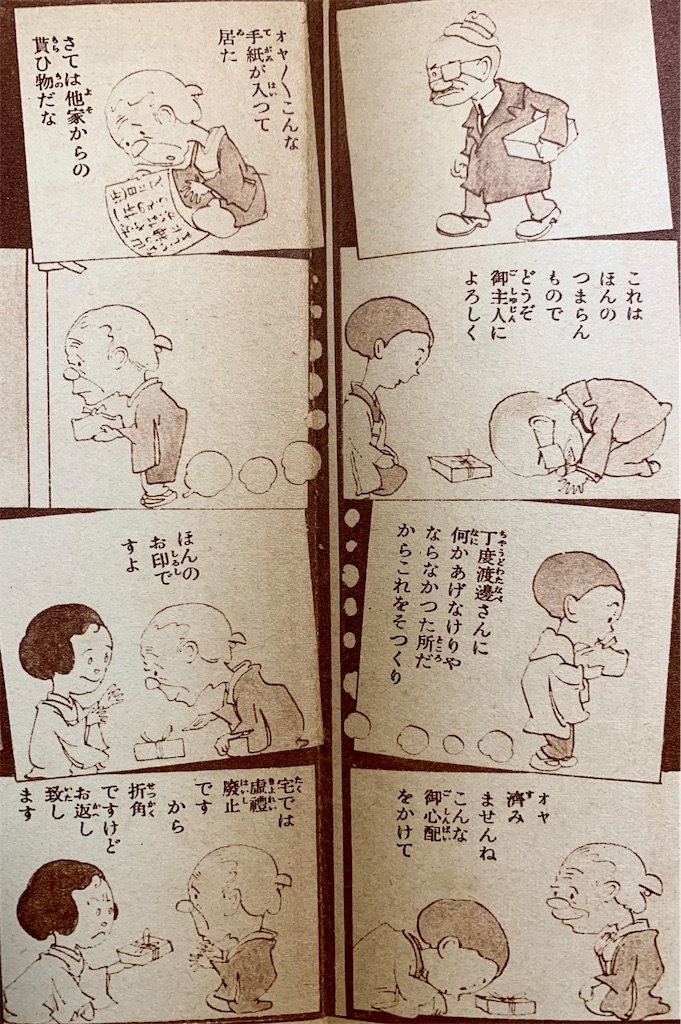 これは
ほんの
つまらん
もので
どうぞ
御主人に
よろしく
丁度渡邊さんに
何かあげなけりや
ならなかつた所だ
からこれをそつくり
オヤ
濟み
ませんね
こんな
御心配
をかけて
オヤ〳〵こんな
手紙が入つて
居た
さては他家からの
貰ひ物だな
ほんの
お印で
すよ
宅では
虚禮
廢止
です
から
折角
ですけど
お返し
致し
ます